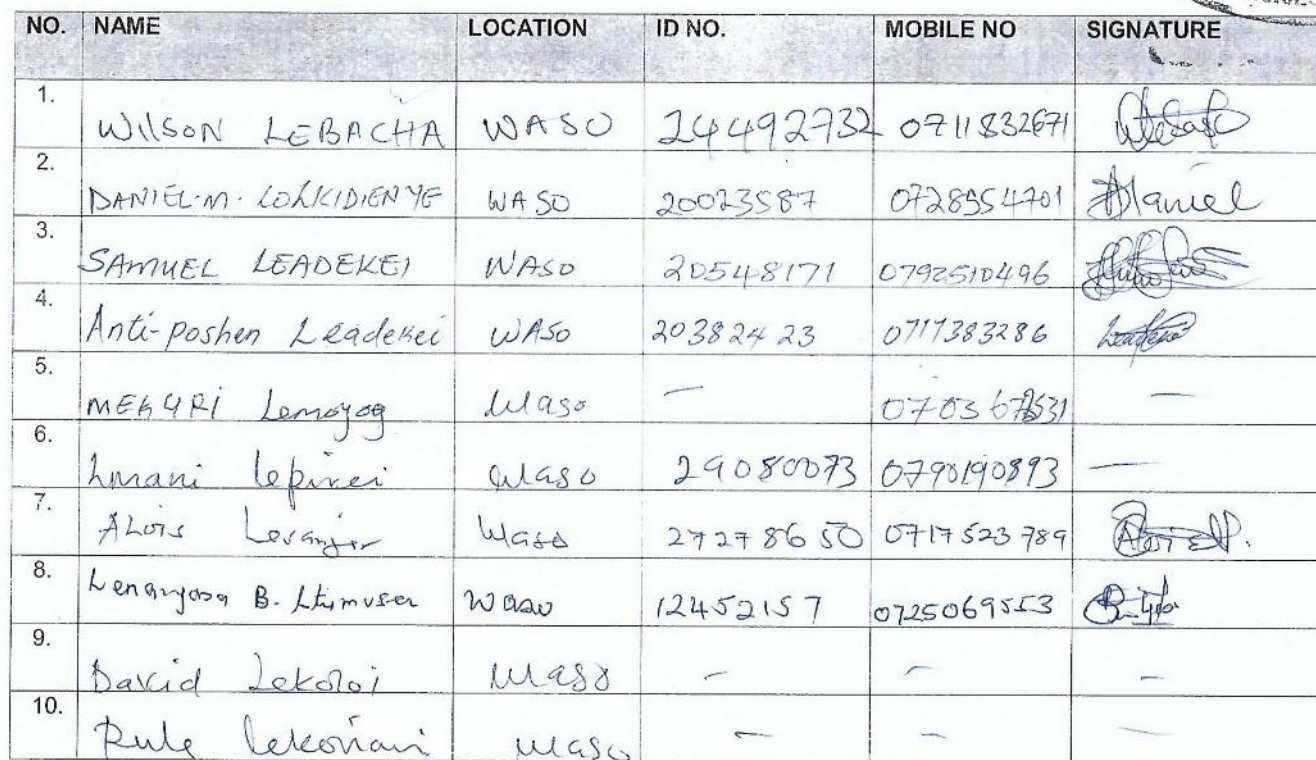 NO. NAME LOCATION ID NO. MOBILE NO SIGNATURE
1. WILSON LEBACHA WASO 24492732 0711832671
2. DANIEL.M. LOLKIDIENYE WASO 20023587
3. SAMUEL LEADEKEI WASO 20548171 0792510496
4. Anti-poshen Leadekei WASO 20382423 0717383286
5. MEKURI Lemoyog Waso —
6. Lmani Lepirei Waso 29080073 0790190893 —
7. ALOIS Waso 27278650 0717523789
8. B. Waso 12452157 0725069553
9. David Lekoloi Waso — — —
10. Waso — — —